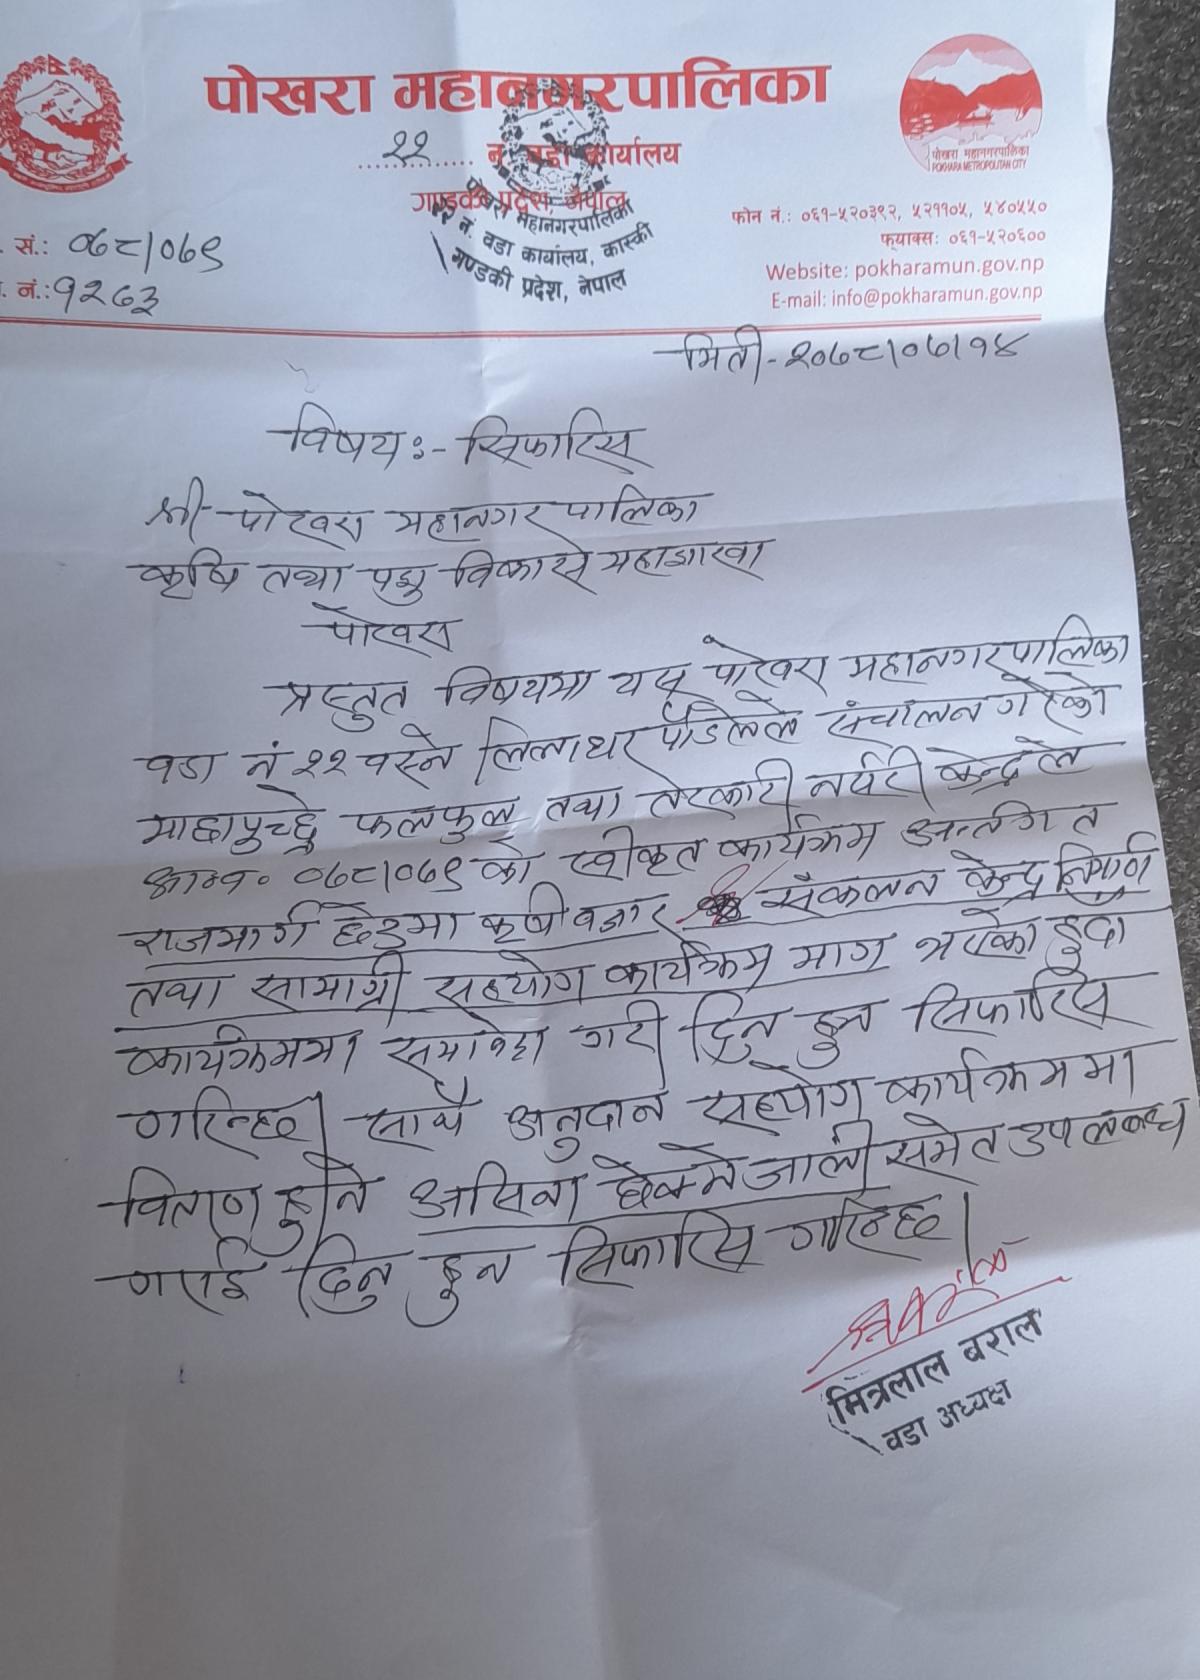 पोखरा महानगरपालिका
२२ नं. वडा कार्यालय
गण्डकी प्रदेश, नेपाल
पोखरा महानगरपालिका
POKHARA METROPOLITAN CITY
पोखरा महानगरपालिका
२२ नं. वडा कार्यालय, कास्की
गण्डकी प्रदेश, नेपाल
फोन नं.: ०६१-५२०३९२, ५२११०५, ५४०५५०
फ्याक्स: ०६१-५२०६००
Website: pokharamun.gov.np
E-mail: info@pokharamun.gov.np
. सं.: ०७८/०७९
. नं.: १२७३
मिती-२०७८/०७/१४
विषय:- सिफारिस
श्री पोखरा महानगरपालिका
कृषि तथा पशु विकास महाशाखा
पोखरा
प्रस्तुत विषयमा यस पोखरा महानगरपालिका
वडा नं २२ वस्ने लिलाधर पौडेलले संचालन गरेको
माछापुच्छ्रे फलफुल तथा तरकारी नर्सरी केन्द्रले
आ.व. ०७८/०७९ को स्वीकृत कार्यक्रम अन्तर्गत
राजमार्ग छेउमा कृषी वजार संकलन केन्द्र निर्माण
तथा सामाग्री सहयोग कार्यक्रम माग भएको हुदा
कार्यक्रममा समावेश गरी दिनु हुन सिफारिस
गरिन्छ। साथै अनुदान सहयोग कार्यक्रममा
वितरण हुने असिना छेक्ने जाली समेत उपलब्ध
गराई दिनु हुन सिफारिस गरिन्छ।
मित्रलाल बराल
वडा अध्यक्ष